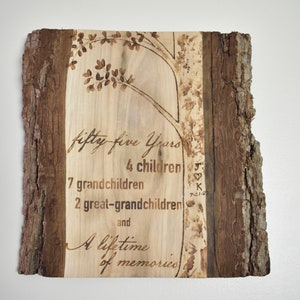 fifty five Years
4 children
7 grandchildren
2 great-grandchildren
and
A lifetime
of memories
J
K